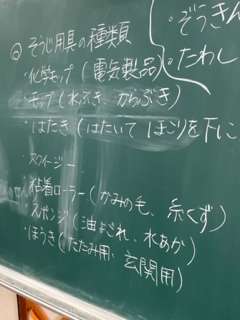 ② そうじ用具の種類
・化学モップ(電気製品)
・モップ(水ぶき、からぶき)
・はたき(はたいて ほこりを下に
・スクイージー
・粘着ローラー(かみの毛、糸くず)
・スポンジ(油よごれ、水あか)
・ほうき(たたみ用、玄関用)
・ぞうきん
・たわし